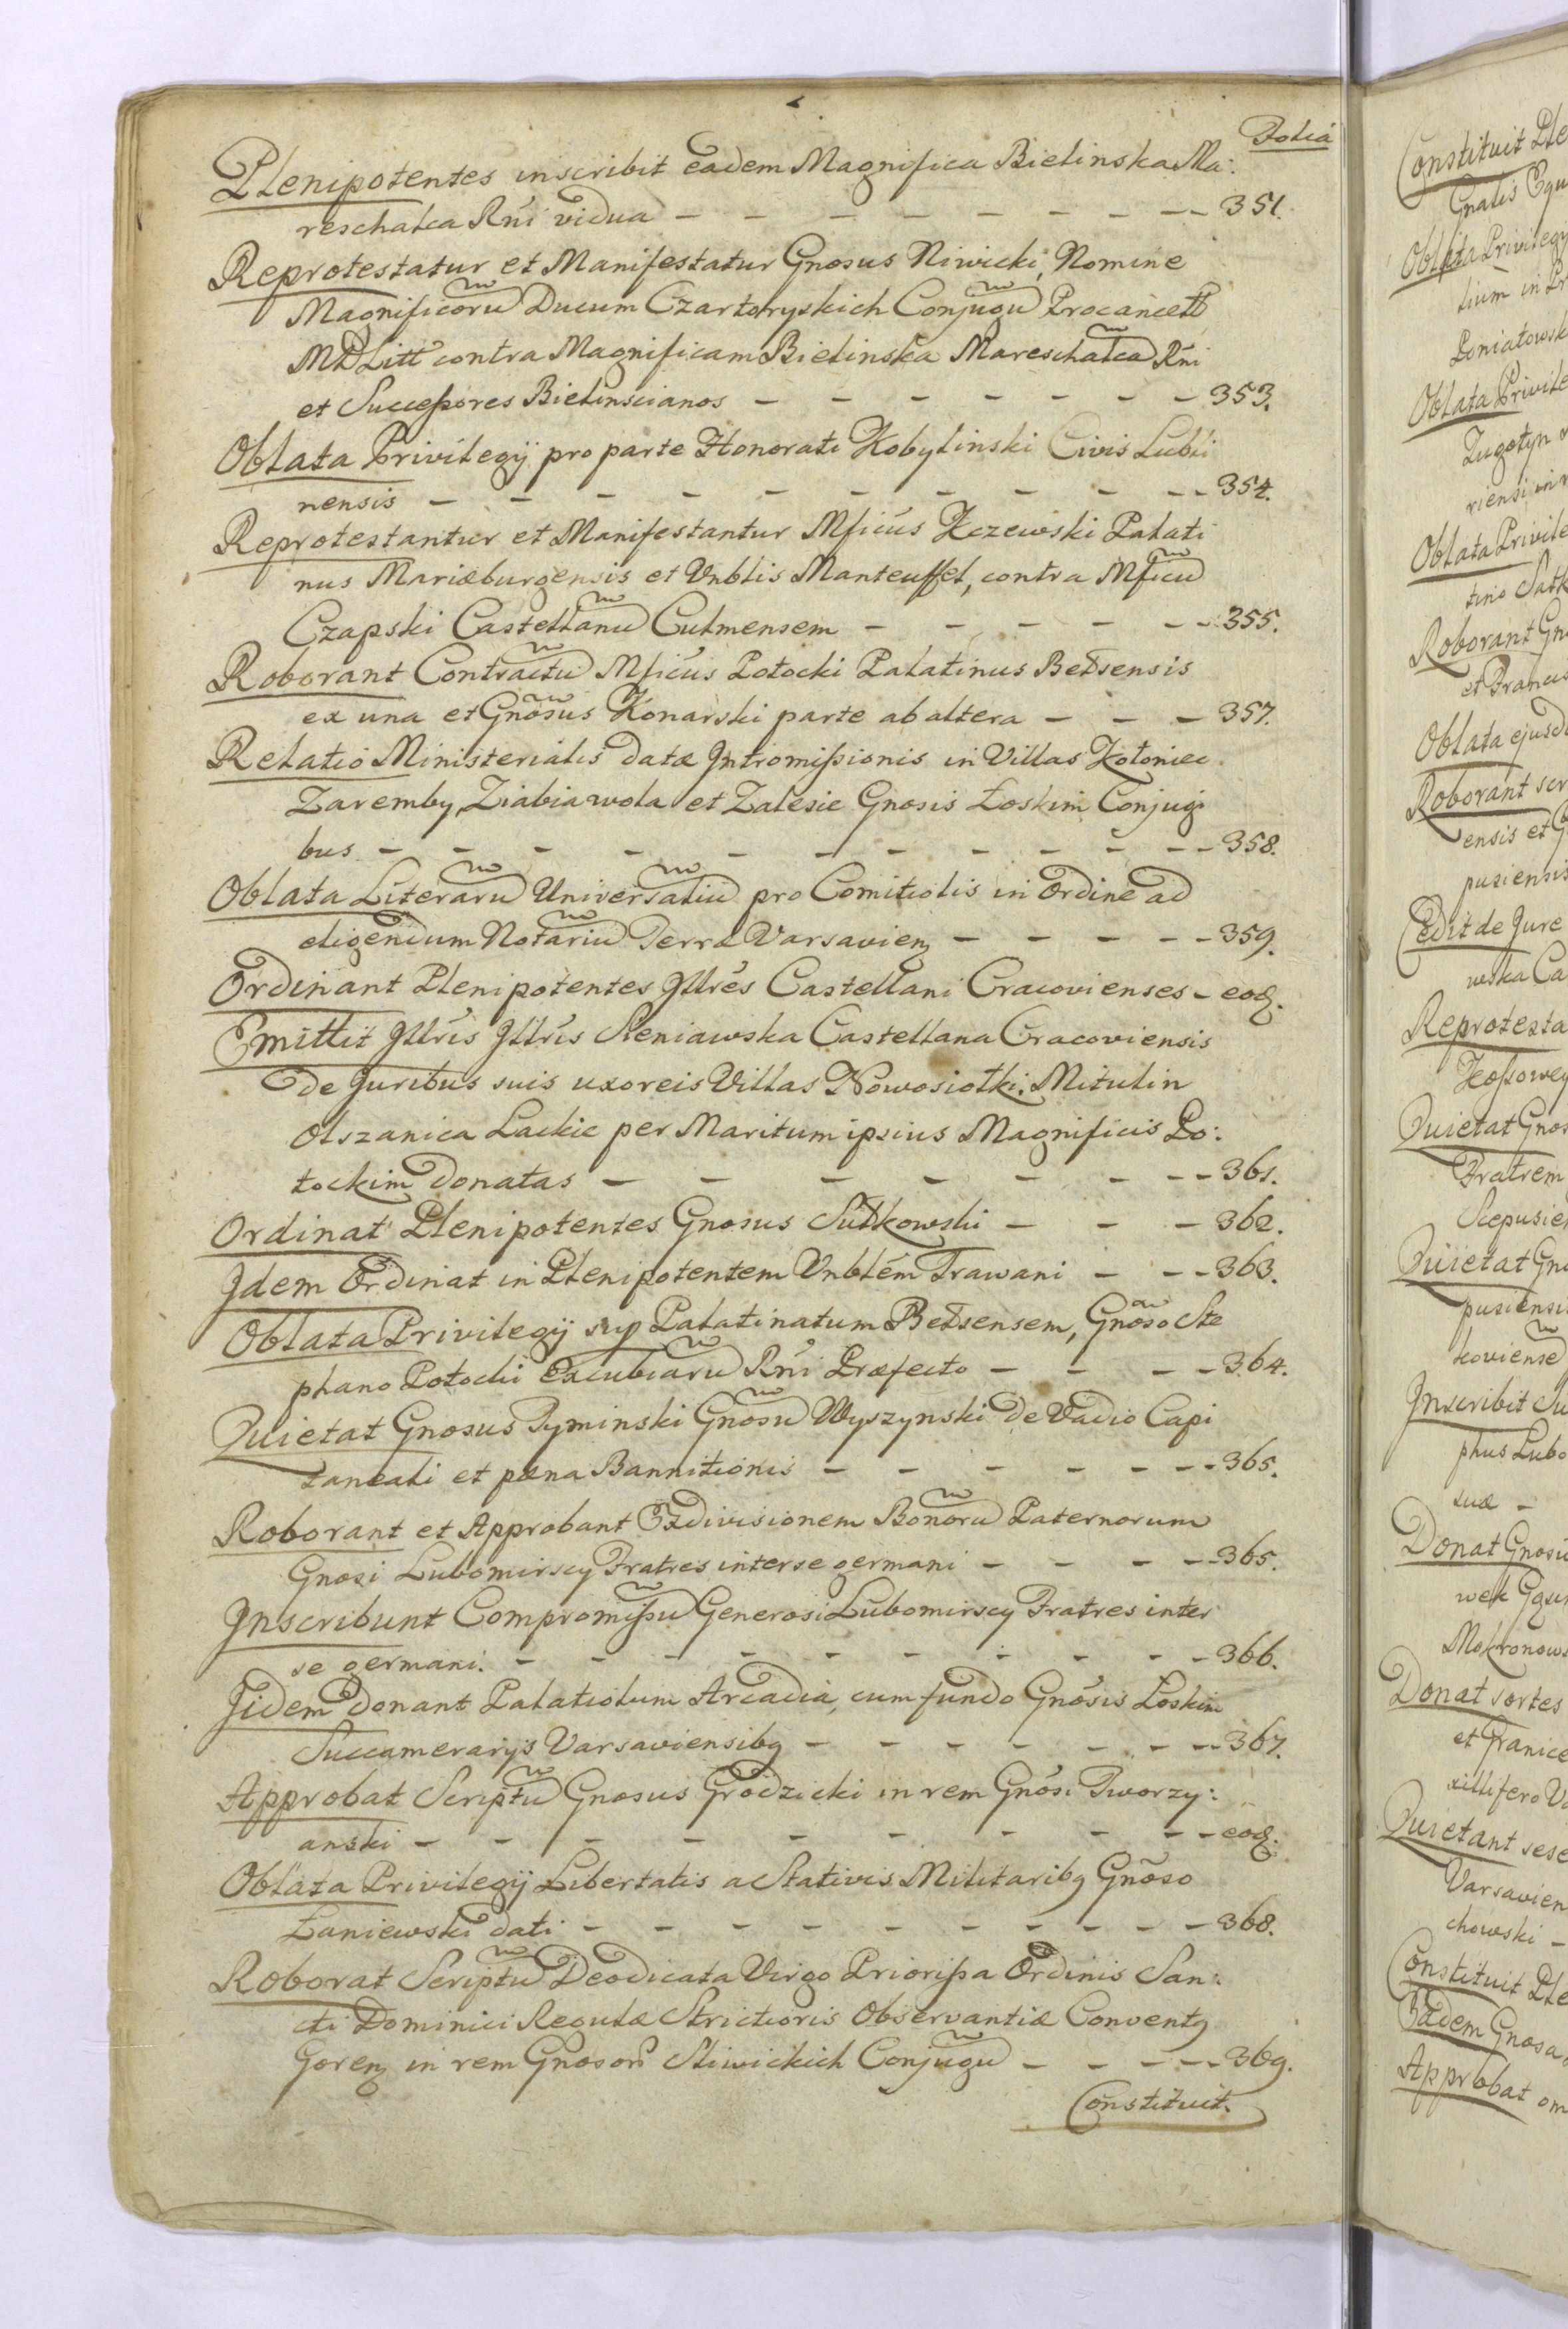 Folia
Plenipotentes inscribit eadem Magnifica Bielinska Ma:
reschalca Rńi vidua - - - - - - - - 351.
Reprotestatur et Manifestatur Gnosus Niwicki, Nomine
Magnificorũ Ducum Czartoryskich Conjugũ Procancell
MDLitt contra Magnificam Bielinska Mareschalcã Rńi
et Successores Bielinscianos - - - - - - - 353.
Oblata Privilegij pro parte Honorati Kobylinski Civis Lubli
nensis - - - - - - - - - - 354.
Reprotestantur et Manifestantur Mficus Kczewski Palati
nus Mariæburgensis et Vnblis Manteuffel, contra Mficũ
Czapski Castellanũ Culmensem - - - - - - 355.
Roborant Contractũ Mficus Potocki Palatinus Belsensis
ex una et Gnosus Konarski parte ab altera - - - 357.
Relatio Ministerialis datæ Intromissionis in Villas Kotoniec
Zaremby, Ziabiawola et Zalesie Gnosis Łoskim Conjugi
bus - - - - - - - - - - - 358.
Oblata Literarũ Universaliũ pro Comitiolis in Ordine ad
eligendum Notariũ Terræ Varsavienȝ - - - - - 359.
Ordinant Plenipotentes Jllres Castellani Cracovienses - eođ.
Emittit Jllris Jllris Sieniawska Castellana Cracoviensis
de Juribus suis uxoreis Villas Nowosiołki, Mitulin
Olszanica Lackie per Maritum ipsius Magnificis Po:
tockim donatas - - - - - - - 361.
Ordinat Plenipotentes Gnosus Sułkowski - - - 362.
Jdem Ordinat in Plenipotentem Vnblem Trawani - - - 363.
Oblata Privilegij sup Palatinatum Belsensem, Gnoso Ste
phano Potocki Excubiarũ Rńi Præfecto - - - - 364.
Quietat Gnosus Tyminski Gnosũ Wyszynski de Vadio Capi
taneali et pœna Bannitionis - - - - - - - 365.
Roborant et Approbant Exdivisionem Bonorũ Paternorum
Gnosi Lubomirscy Fratres inter se germani - - - - - 365.
Jnscribunt Compromissũ Generosi Lubomirscy Fratres inter
se germani. - - - - - - - - - - 366.
Jidem donant Palatiolum Arcadia, cum fundo Gnosis Łoskim
Succamerarijs Varsaviensibȝ - - - - - - - - 367.
Approbat Scriptũ Gnosus Grodzicki in rem Gnosi Tworzy:
anski - - - - - - - - - - eođ.
Oblata Privilegij Libertatis a Stativis Militaribȝ Gnoso
Łaniewski dati - - - - - - - - - 368.
Roborat Scriptũ Deodicata Virgo Priorissa Ordinis San:
cti Dominici Regulæ Strictioris Observantiæ Conventȝ
Gorenȝ in rem Gnosor Sliwickich Conjugũ - - - - - 369.
Constituit.
Constituit Ple
Gnalis
Oblata Privilegij
lium in Pr
Poniatowsk
Oblata Privile
riensi in
Oblata Privile
tino Sułk
Roborant Gn
et Francis
Oblata ejusd
Roborant scr
ensis et G
pusiensis
Cedit de Jure
wska Ca
Reprotesta
Quietat Gnos
Fratrem
Scepusien
Quietat Gno
pusiensi
koviensẽ
Jnscribit
phus Lubo
suæ -
Donat Gnosu
wek
Mokronows
Donat sortes
et
xillifero Va
Quietant sese
Varsavien
chowski -
Constituit Ple
Eadem Gnosa
Approbat om